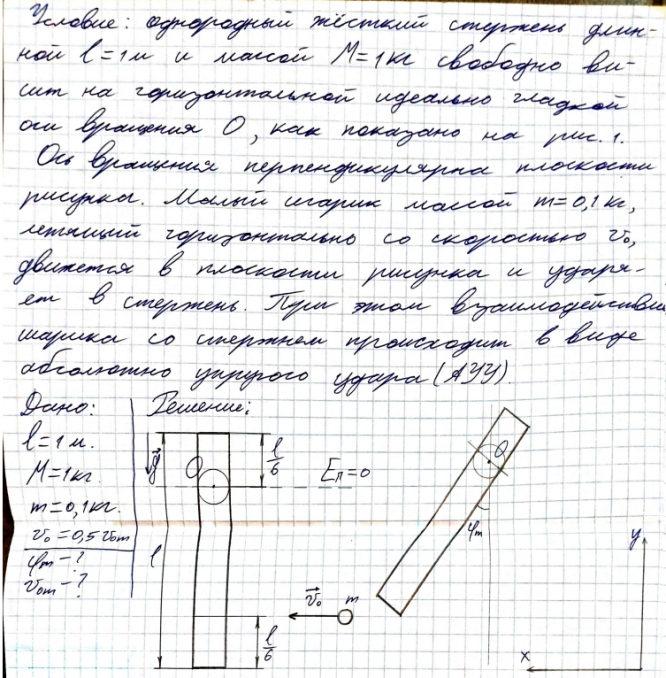 Условие: однородный жёсткий стержень длин-
ной l=1м и массой M=1кг свободно ви-
сит на горизонтальной идеально гладкой
оси вращения O, как показано на рис. 1.
Ось вращения перпендикулярна плоскости
рисунка. Малый шарик массой m=0,1кг,
летящий горизонтально со скоростью v₀,
движется в плоскости рисунка и ударя-
ет в стержень. При этом взаимодействие
шарика со стержнем происходит в виде
абсолютно упругого удара (АУУ).
Дано: Решение:
l=1м.
M=1кг.
m=0,1кг.
v₀=0,5v₀m
φm-?
v₀m-?
O
l/6
Eп=0
l
v₀ m
l/6
O
φm
y
x